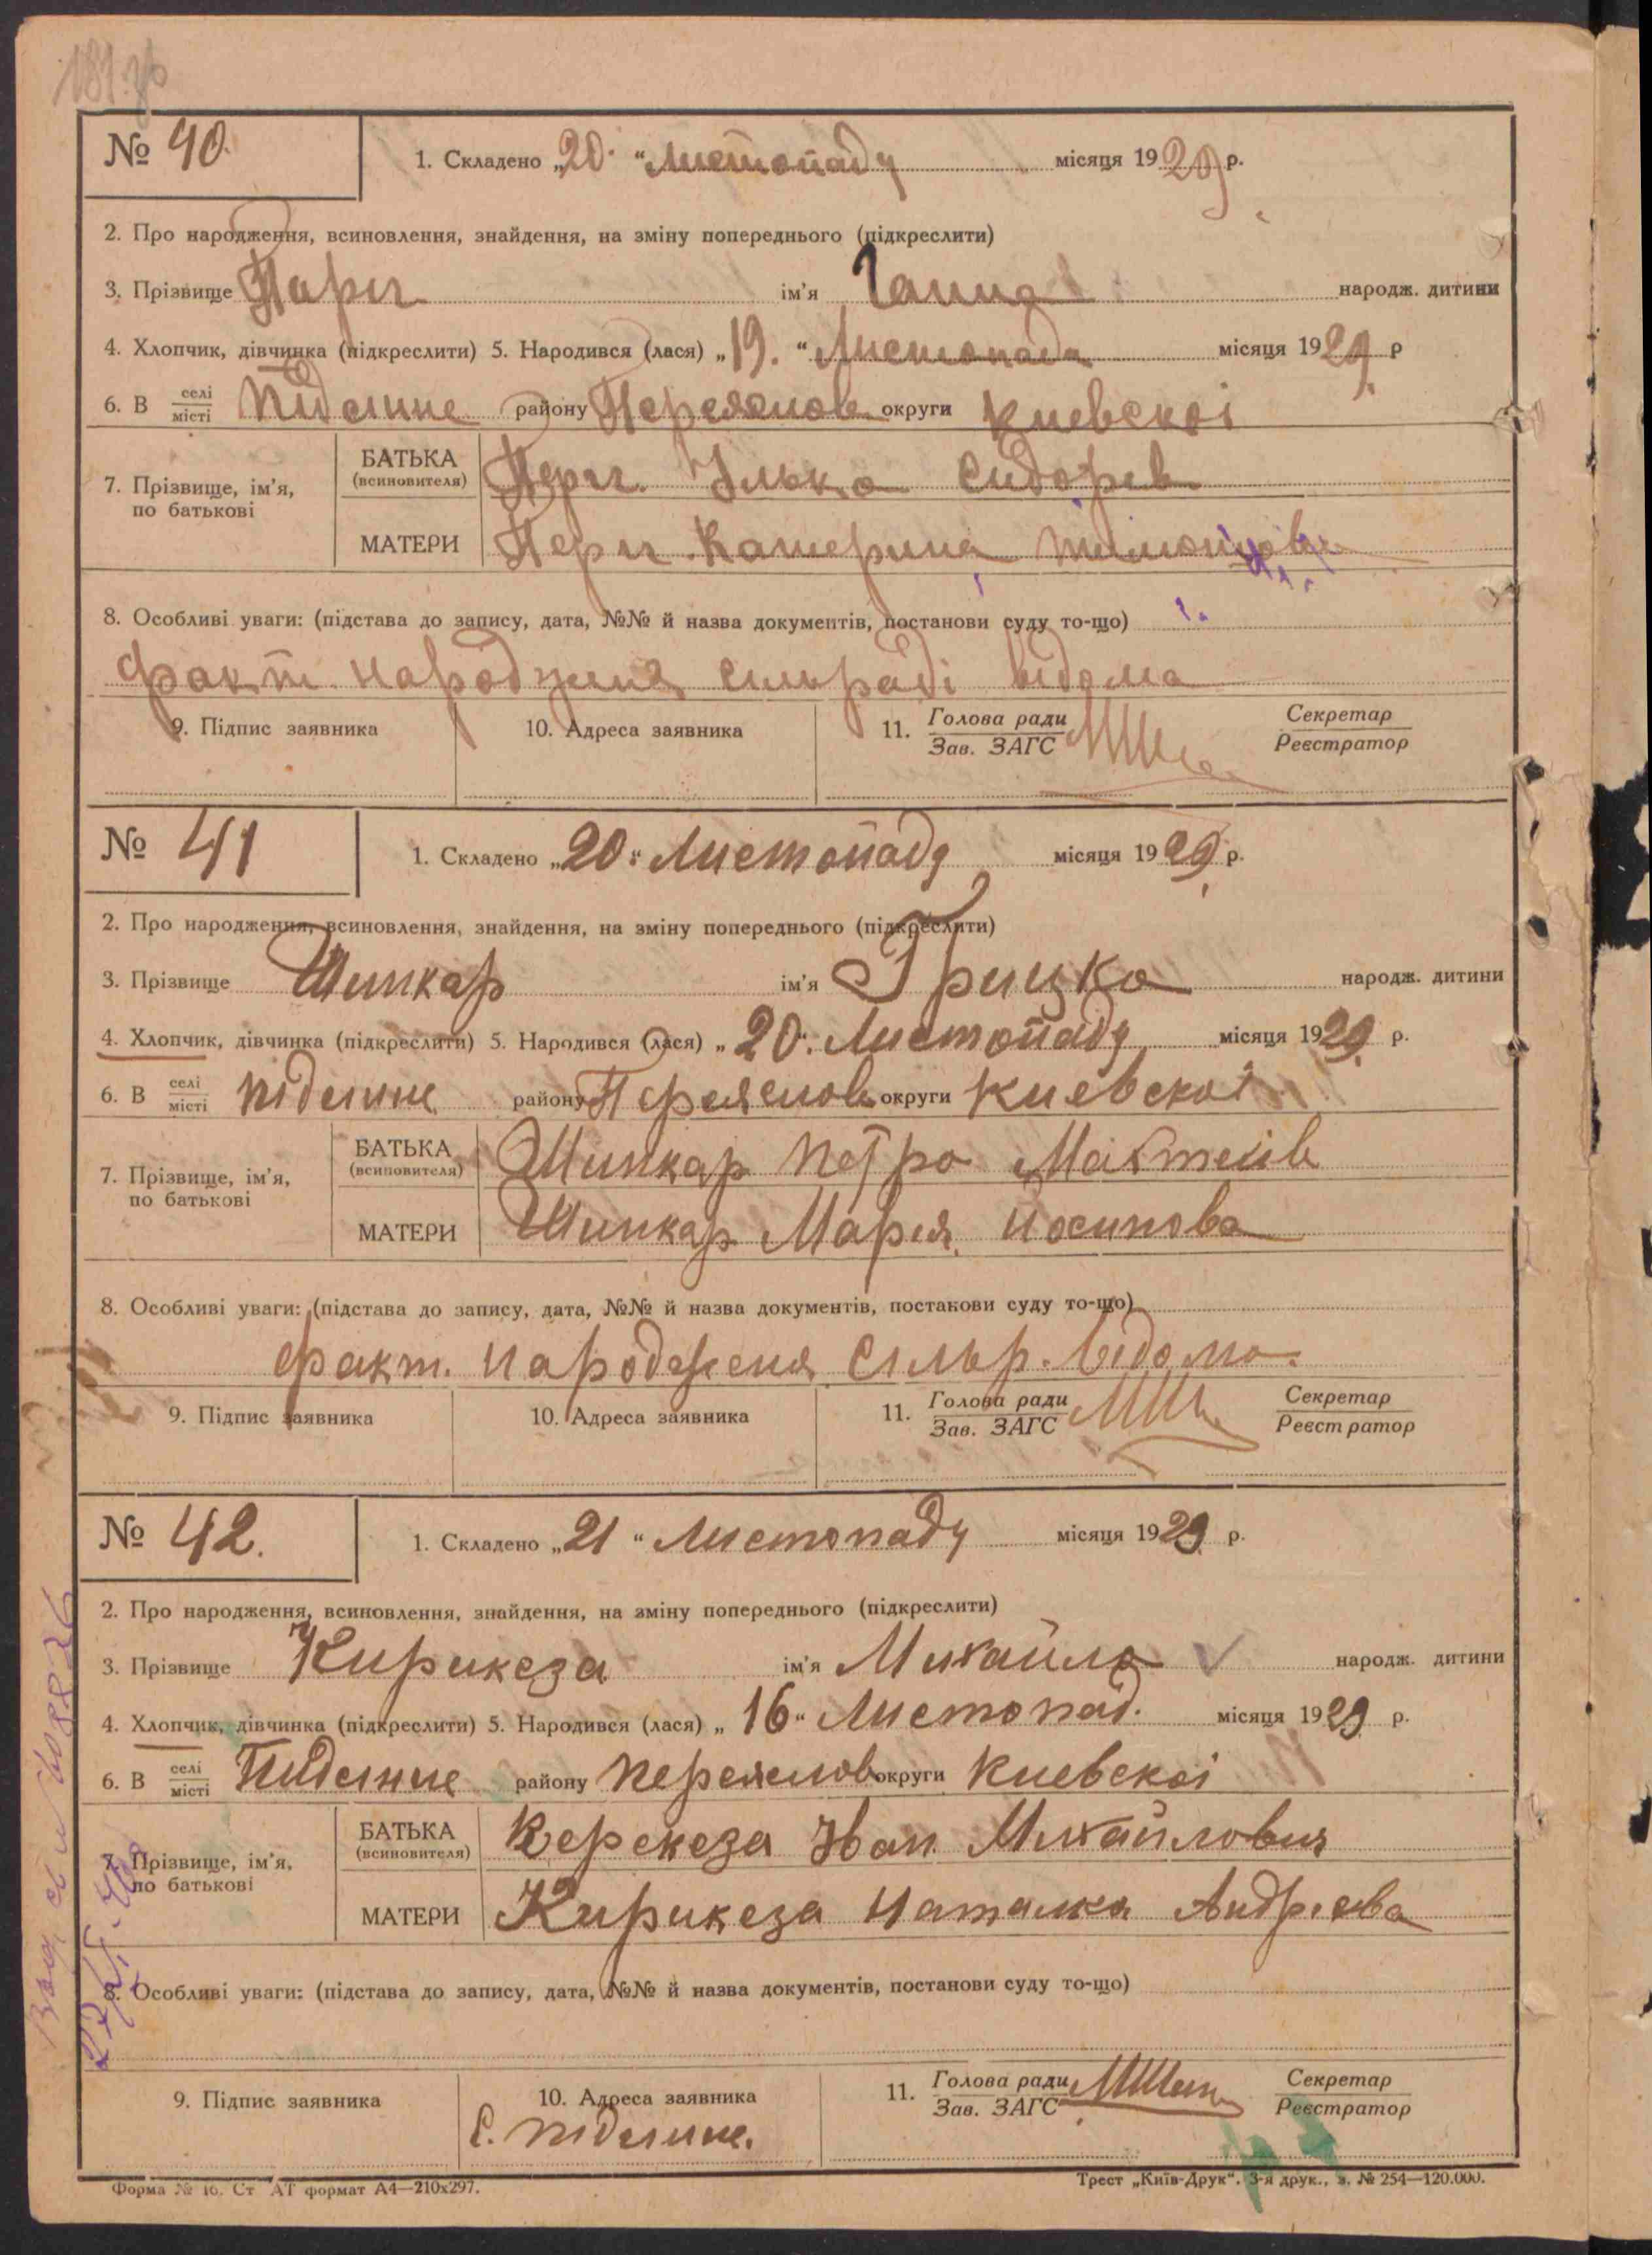 № 40.
1. Складено „20“ Листопаду місяця 1929 р.
2. Про народження, всиновлення, знайдення, на зміну попереднього (підкреслити)
3. Прізвище ім’я Ганна народж. дитини
4. Хлопчик, дівчинка (підкреслити) 5. Народився (лася) „19.“ Листопада місяця 1929 р
6. В селі місті Підсинне району Переяслов округи Киевскоі
7. Прізвище, ім’я, по батькові
БАТЬКА (всиновителя) Илько Сидорів
МАТЕРИ Катерина
8. Особливі уваги: (підстава до запису, дата, №№ й назва документів, постанови суду то-що)
факт. народженя сільраді відома
9. Підпис заявника 10. Адреса заявника 11. Голова ради Зав. ЗАГС Секретар Реєстратор
№ 41
1. Складено „20“ Листопаду місяця 1929 р.
2. Про народження, всиновлення, знайдення, на зміну попереднього (підкреслити)
3. Прізвище Шинкар ім’я Грицко народж. дитини
4. Хлопчик, дівчинка (підкреслити) 5. Народився (лася) „20. Листопаду місяця 1929 р.
6. В селі місті Підсинне району Переяслов округи Киевскоі
7. Прізвище, ім’я, по батькові
БАТЬКА (всиновителя) Шинкар Петро
МАТЕРИ Шинкар Мария Иосипова
8. Особливі уваги: (підстава до запису, дата, №№ й назва документів, постанови суду то-що)
факт. народженя сільр. відомо.
9. Підпис заявника 10. Адреса заявника 11. Голова ради Зав. ЗАГС Секретар Реєстратор
№ 42.
1. Складено „21“ Листопаду місяця 1929 р.
2. Про народження, всиновлення, знайдення, на зміну попереднього (підкреслити)
3. Прізвище Кирикеза ім’я Михайло народж. дитини
4. Хлопчик, дівчинка (підкреслити) 5. Народився (лася) „16“ Листопад. місяця 1929 р.
6. В селі місті Пидсинне району Переяслов округи Киевскоі
7. Прізвище, ім’я, по батькові
БАТЬКА (всиновителя) Керекеза Іван Михайлович
МАТЕРИ Кирикеза Наталка Андрієва
8. Особливі уваги: (підстава до запису, дата, №№ й назва документів, постанови суду то-що)
9. Підпис заявника 10. Адреса заявника 11. Голова ради Зав. ЗАГС Секретар Реєстратор
с. Підсинне.
Форма № 16. Ст АТ формат А4—210х297.
Трест „Київ-Друк“. 3-я друк., з. № 254—120.000.